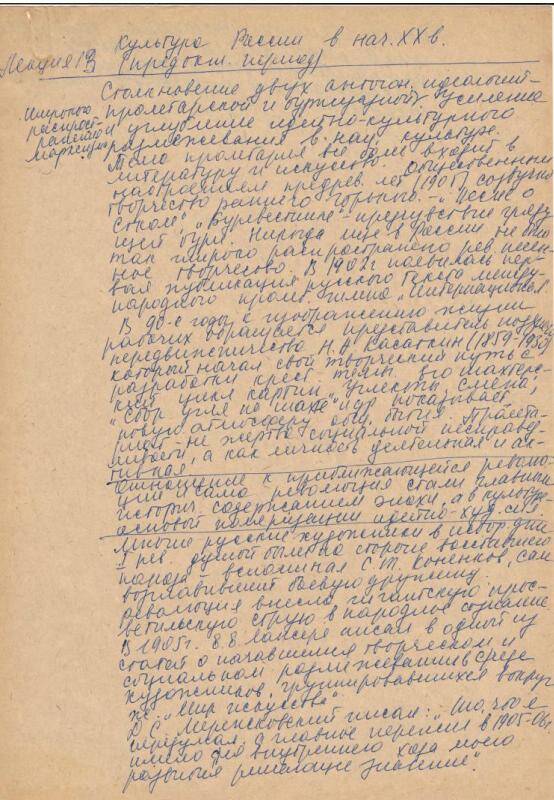 Культура России в нач. XX в.
Лекция 13 (предокт. период)
Столкновение двух антогон. идеологий –
Широкое распространение марксизма
пролетарской и буржуазной. Усиление
и углубление идейно-культурного
размежевания в нац. культуре.
Тема пролетария всё более входит в
литературу и искусство. Общественным
настроениям предрев. лет (1901) созвучно
творчество раннего Горького – „Песнь о
Соколе", „Буревестник" – предчувствие гряду-
щей бури. Никогда ещё в России не было
так широко распространено рев. песен-
ное творчество. В 1902 г появилась пер-
вая публикация русского текста между-
народного пролет. гимна „Интернационал"
В 90-е годы к изображению жизни
рабочих обращается представитель позднего
передвижничества Н.А. Касаткин (1859-1930)
который начал свой творческий путь с
разработки крест. темы. Его шахтерс-
кий цикл картин „Углекопы, смена",
„Сбор угля на шахте" и др. показывает
новую атмосферу общ. бытия. Пролета-
риат – не жертва социальной несправед-
ливости, а как личность деятельная и ак-
тивная.
Отношение к приближающейся револю-
ции и сама революция стали главным
историч. содержанием эпохи, а в культуре
основой поляризации идейно-худ. сил.
Многие русские художники в рев. дни
душой были на стороне восставшего
народа – вспоминал С.Т. Коненков, сам
возглавивший боевую дружину.
Революция внесла гигантскую прос-
ветительскую струю в народное сознание
В 1905г. Е.Е. Лансере писал в одной из
статей о начавшемся творческом и
социальном размежевании в среде
художников, группировавшихся вокруг
ж. „Мир искусства"
Д.С. Мережковский писал: „То, что я
передумал, а главное пережил в 1905-06г.
имело для внутреннего хода моего
развития решающее значение".